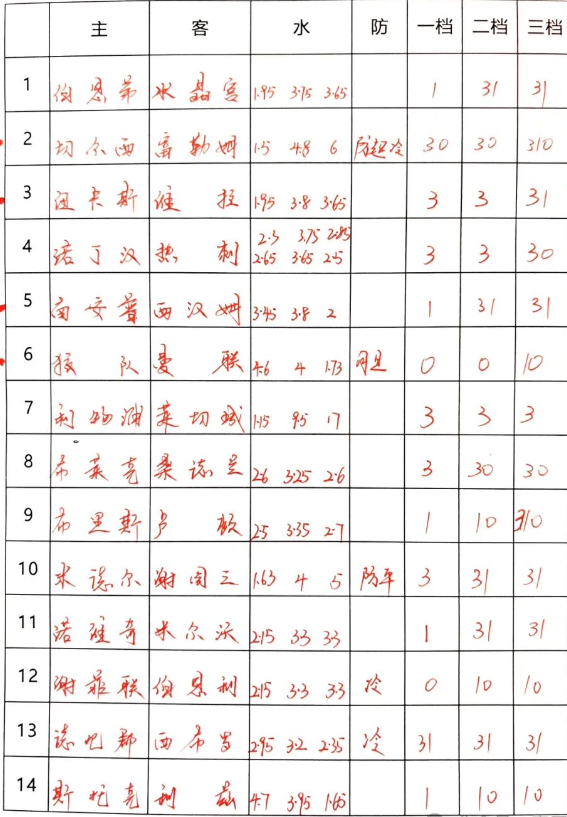 主 客 水 防 一档 二档 三档
1 伯恩茅 水晶宫 1.95 3.75 3.65 1 31 31
2 切尔西 富勒姆 1.5 4.8 6 防超冷 30 30 310
3 纽卡斯 维拉 1.95 3.8 3.65 3 3 31
2.3 3.75 2.85
4 诺丁汉 热刺 2.65 3.65 2.5 3 3 30
5 南安普 西汉姆 3.45 3.8 2 1 31 31
6 狼队 曼联 4.6 4 1.73 0 0 10
7 利物浦 莱切城 1.15 9.5 17 3 3 3
8 布莱克 桑德兰 2.6 3.25 2.6 3 30 30
9 布里斯 卢顿 2.5 3.35 2.7 1 10 310
10 米德尔 谢周三 1.63 4 5 防平 3 31 31
11 诺维奇 米尔沃 2.15 3.3 3.3 1 31 31
12 谢菲联 伯恩利 2.15 3.3 3.3 冷 0 10 10
13 德比郡 西布罗 2.95 3.2 2.35 冷 31 31 31
14 斯托克 利兹 4.7 3.95 1.65 1 10 10